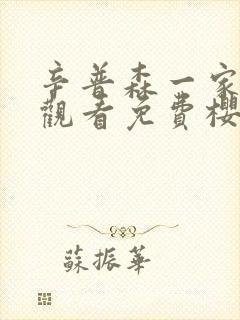 辛普森一家
觀看免費櫻
蘇振華